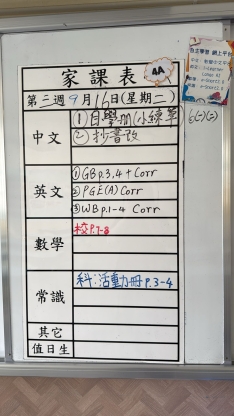 家課表
4A
第三週9月16日(星期二)
中文
①自學冊(小練筆)
②抄書改
英文
①GB p.3,4 + Corr
②PGE(A) Corr
③WB p.1-4 Corr
數學
校P.7-8
常識
科:活動冊P.3-4
其它
值日生
自主學習 網上平台